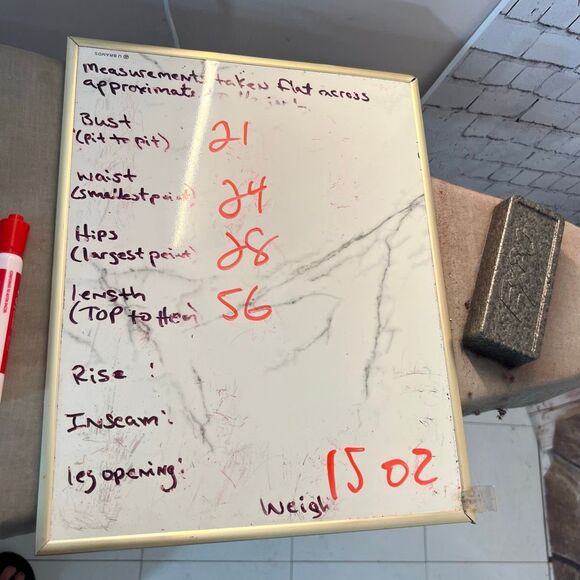 U BRANDS
Measurements taken flat across
approximate
Bust
(pit to pit) 21
waist
(smallest point) 24
Hips
(largest point) 28
length
(TOP to Hem) 56
Rise :
Inseam:
leg opening:
15 OZ
Weigh